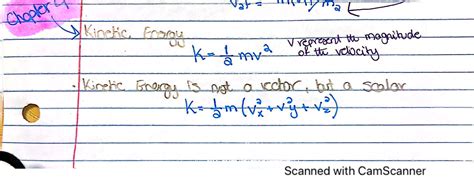 Chapter 4
Kinetic Energy
K = 1/2 mv²
V represent the magnitude
of the velocity
· Kinetic Energy is not a vector, but a scalar
K = 1/2 m (v²x + v²y + v²z)
Scanned with CamScanner